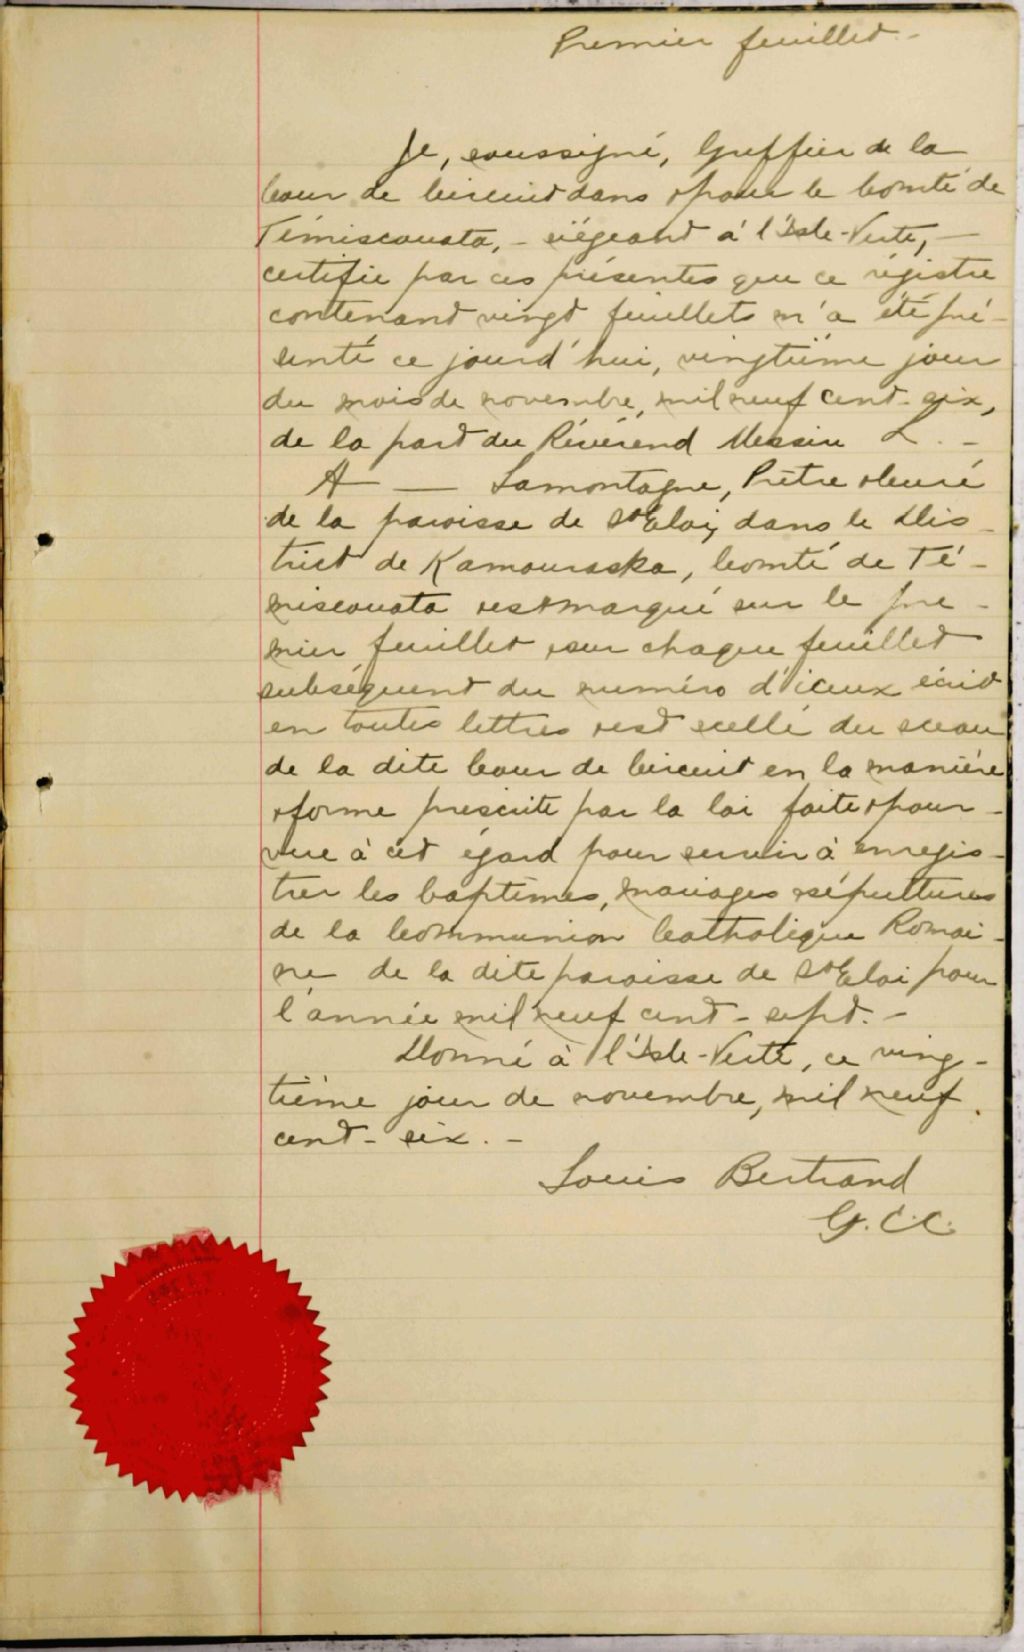 Premier feuillet.-
Je, soussigné, Greffier de la
Cour de Circuit dans & pour le Comté de
Témiscouata, - siégeant à l'Isle-Verte, -
certifie par ces présentes que ce régistre
contenant vingt feuillets m'a été pré-
senté ce jourd'hui, vingtième jour
du mois de novembre, mil neuf cent-six,
de la part du Révérend Messire L. -
A — Lamontagne, Prêtre & Curé
de la paroisse de St Eloi, dans le Dis-
trict de Kamouraska, Comté de Té-
miscouata & est marqué sur le pre-
mier feuillet & sur chaque feuillet
subséquent du numéro d'iceux écrit
en toutes lettres & est scellé du sceau
de la dite Cour de Circuit en la manière
& forme prescrite par la loi faite & pour-
vue à cet égard pour servir à enregis-
trer les baptêmes, mariages & sépultures
de la Communion Catholique Romai-
ne de la dite paroisse de St Eloi pour
l'année mil neuf cent-sept.-
Donné à l'Isle-Verte, ce ving-
tième jour de novembre, mil neuf
cent-six.-
Louis Bertrand
G.C.C.